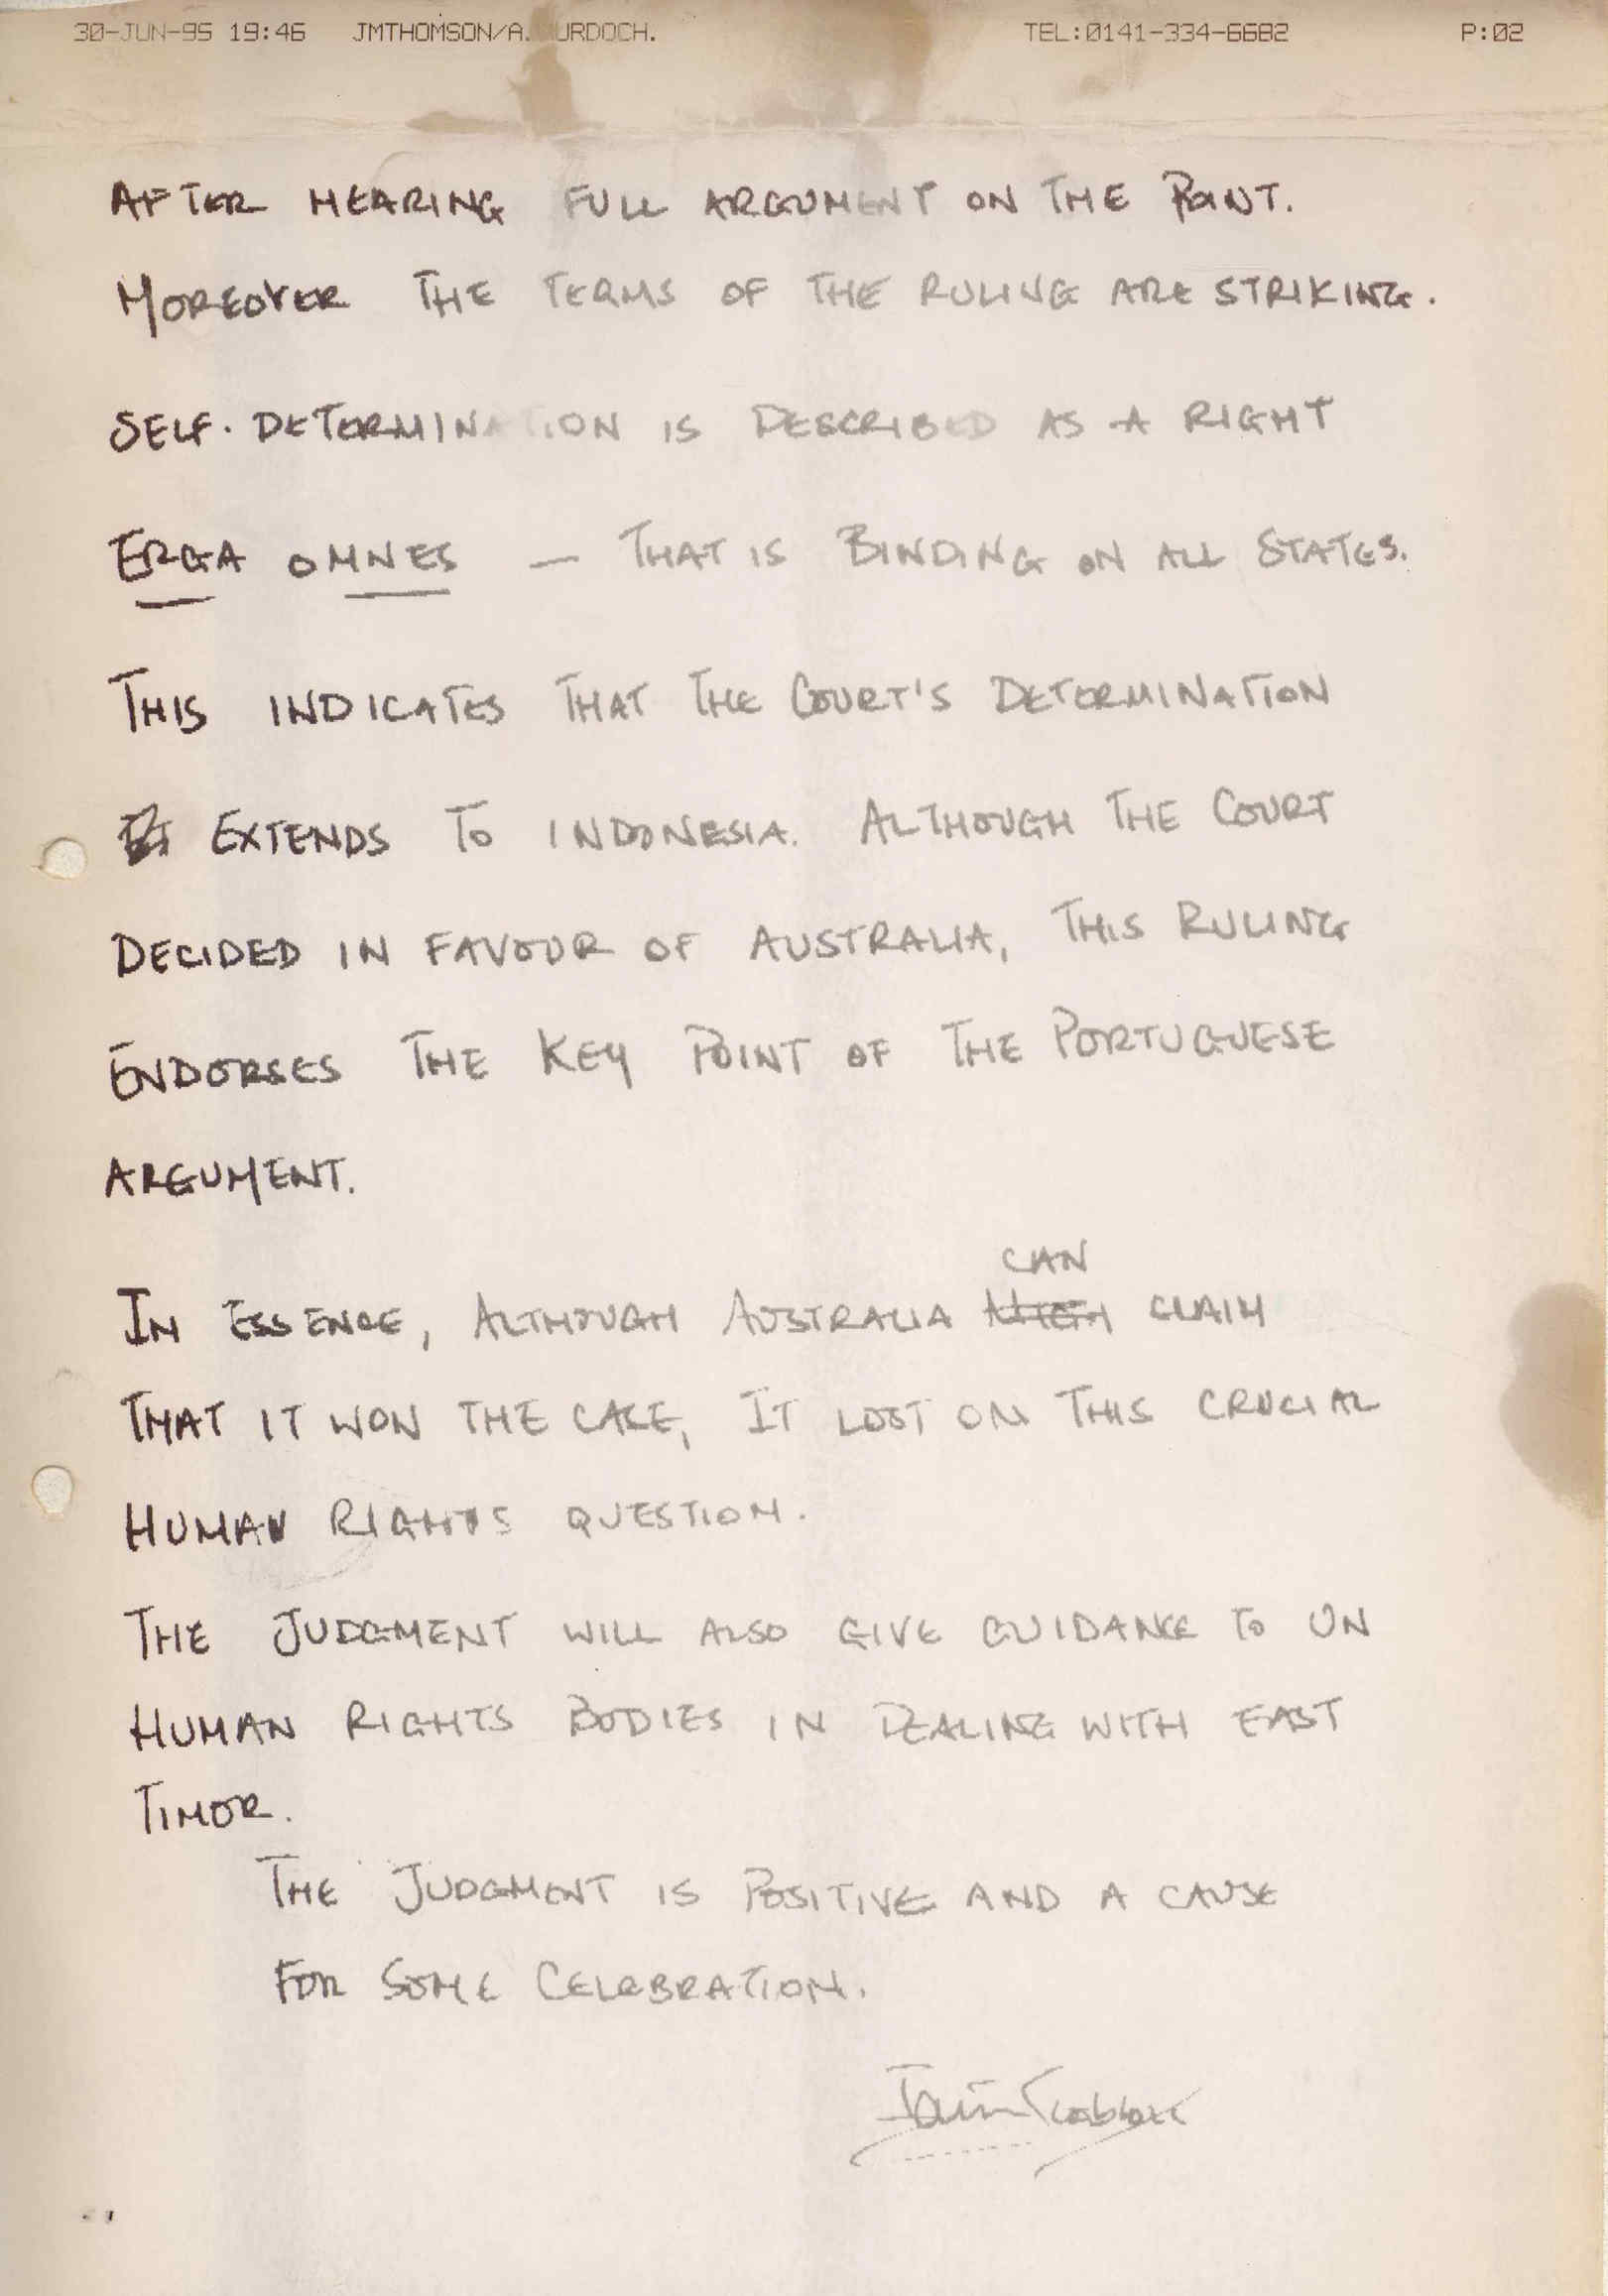 30-JUN-95 19:46 JMTHOMSON/A. MURDOCH. TEL:0141-334-6682 P:02
AFTER HEARING FULL ARGUMENT ON THE POINT.
MOREOVER THE TERMS OF THE RULING ARE STRIKING.
SELF-DETERMINATION IS DESCRIBED AS A RIGHT
ERGA OMNES — THAT IS BINDING ON ALL STATES.
THIS INDICATES THAT THE COURT'S DETERMINATION
EXTENDS TO INDONESIA. ALTHOUGH THE COURT
DECIDED IN FAVOUR OF AUSTRALIA, THIS RULING
ENDORSES THE KEY POINT OF THE PORTUGUESE
ARGUMENT.
CAN
IN ESSENCE, ALTHOUGH AUSTRALIA CLAIM
THAT IT WON THE CASE, IT LOST ON THIS CRUCIAL
HUMAN RIGHTS QUESTION.
THE JUDGMENT WILL ALSO GIVE GUIDANCE TO UN
HUMAN RIGHTS BODIES IN DEALING WITH EAST
TIMOR.
THE JUDGMENT IS POSITIVE AND A CAUSE
FOR SOME CELEBRATION.
Iain Scobbie